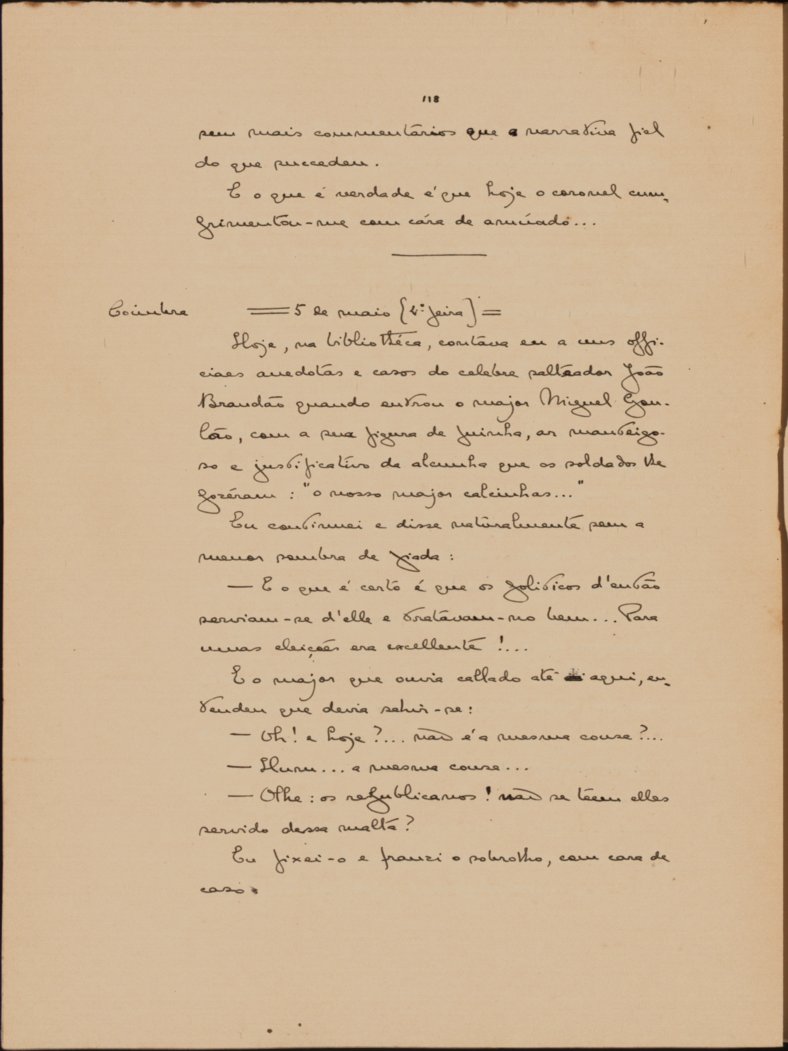 118
sem mais commentários que a narrativa fiel
do que succedeu.
E o que é verdade é que hoje o coronel cum-
primentou-me com cára de amúado...
Coimbra = 5 de maio (2.ª feira) =
Hoje, na bibliothéca, contava eu a uns offi-
ciaes anedotas e casos do celebre salteador João
Brandão quando entrou o major Miguel Gon-
ção, com a sua figura de fuinha, ar manteigo-
so e justificativo da alcunha que os soldados lhe
pozéram: "o nosso major calcinhas..."
Eu continuei e disse naturalmente sem a
menor sombra de piada:
— E o que é certo é que os politicos d'então
serviam-se d'elle e tratávam-no bem... Para
umas eleições era excellente!...
E o major que ouvia callado até aqui, en-
tendeu que devia sahir-se:
— Oh! e hoje?... não é a mesma cousa?...
— Hum... a mesma cousa...
— Olhe: os republicanos! não se teem elles
servido dessa malta?
Eu fixei-o e franzi o sobrolho, com cara de
caso.